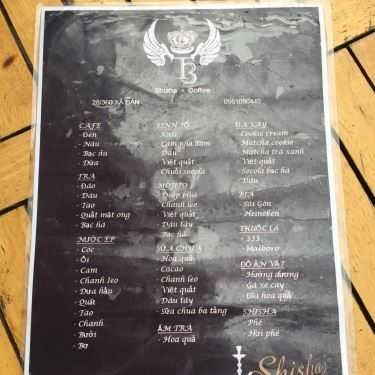 TB
Shisha + Coffee
28/360 XÃ ĐÀN
CAFE
- Đen
- Nâu
- Bạc
- Dừa
TRÀ
- Đào
- Dâu
- Táo
- Quất mật ong
- Bạc hà
NƯỚC ÉP
- Cóc
- Ổi
- Cam
- Chanh leo
- Dưa hấu
- Quất
- Táo
- Chanh
- Bưởi
- Bơ
SINH TỐ
- Xoài
- Dâu
- Việt quất
MOJITO
- Chanh leo
- Việt quất
- Dâu tây
- Bạc hà
SỮA CHUA
- Hoa quả
- Cacao
- Chanh leo
- Việt quất
- Dâu tây
- Sữa chua ba tầng
ẤM TRÀ
- Hoa quả
ĐÁ XAY
- Cookie cream
- Matcha cookie
- Matcha trà xanh
- Việt quất
- Socola bạc hà
- Dâu
BIA
- Sài Gòn
- Heineken
THUỐC LÁ
- 555
- Malboro
ĐỒ ĂN VẶT
- Hướng dương
- Gà xé cay
- Đĩa hoa quả
SHISHA
Shisha